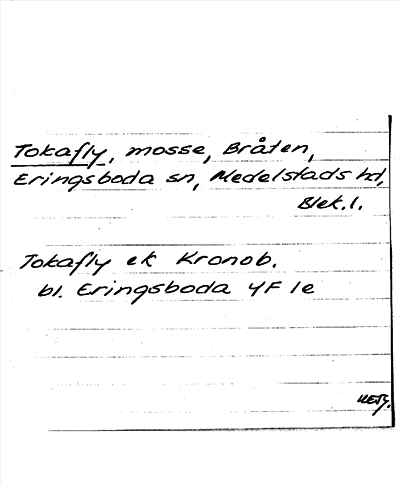 Tokafly, mosse, Bråten,
Eringsboda sn, Medelstads hd,
Blek.l.
Tokafly ek Kronob.
bl. Eringsboda 4F 1e